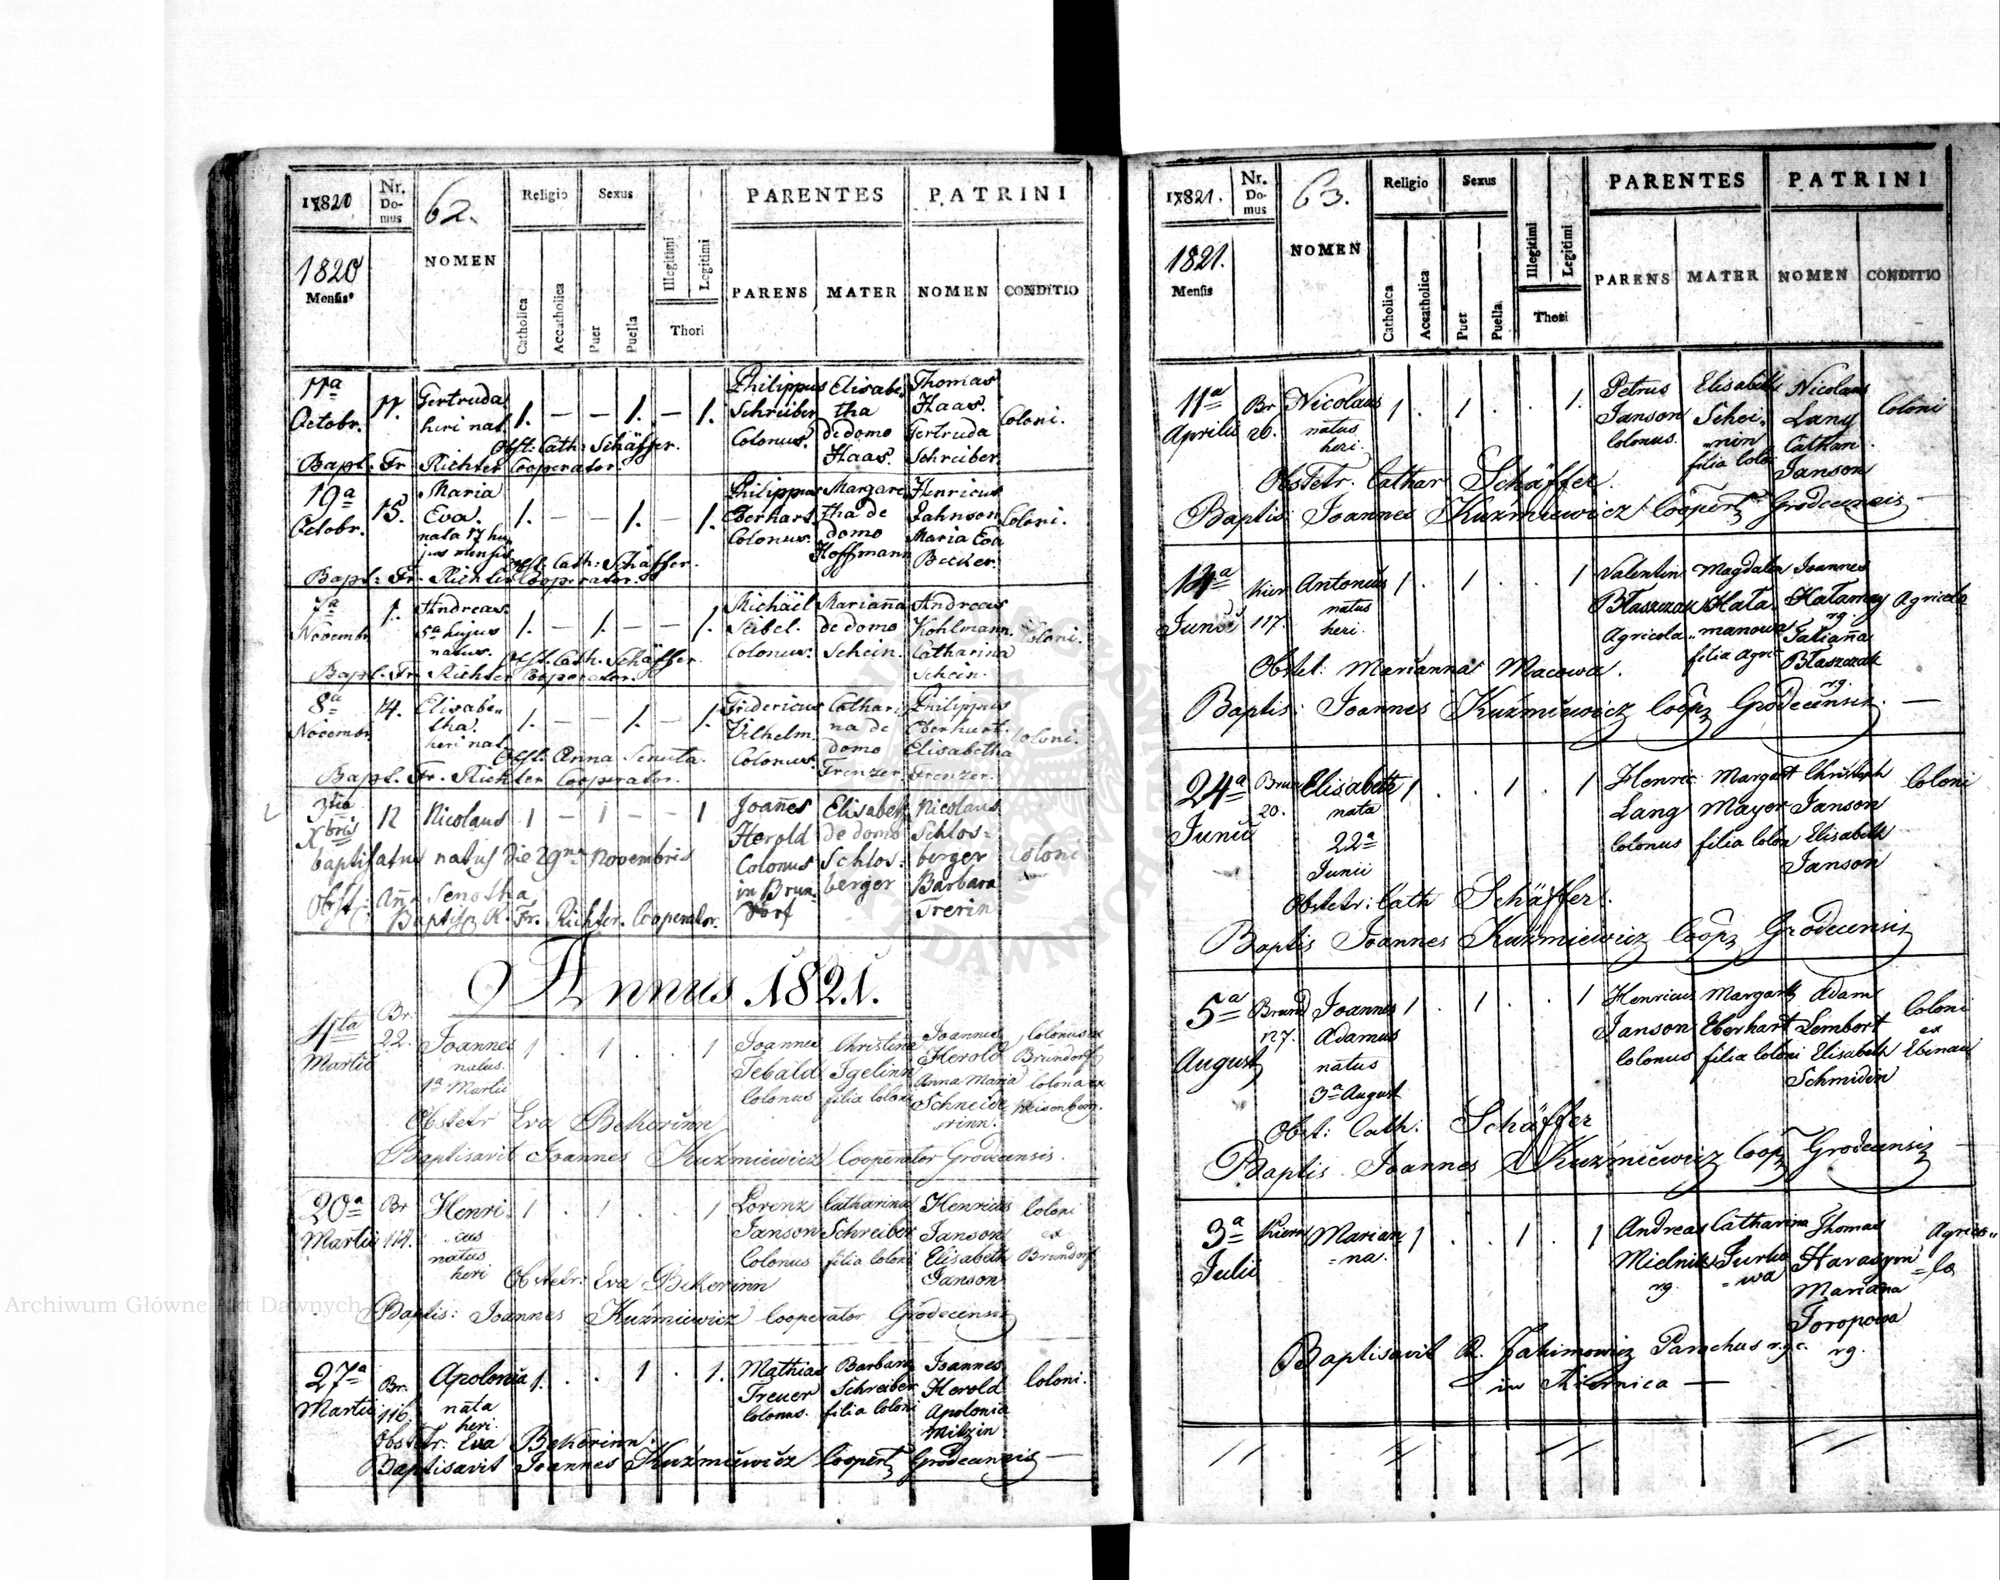 17820
Nr. Domus
62.
NOMEN
Religio
Sexus
Illegitimi
Legitimi
PARENTES
PATRINI
1820
Mensis
Catholica
Accatholica
Puer
Puella
Thori
PARENS
MATER
NOMEN
CONDITIO
11a Octobr.
11.
Gertruda heri nat.
1. — — 1. — 1.
Philippus Schreiber Colonus.
Elisabetha de domo Haas.
Thomas Haas. Gertruda Schreiber.
Coloni.
Obst: Cath: Schäffer.
Bapt. Fr. Richter Cooperator.
19a Octobr.
15.
Maria Eva. nata 17 hujus mensis
1. — — 1. — 1.
Philippus Eberhart. Colonus.
Margaretha de domo Hoffmann
Henricus Jahnson Maria Eva Becker.
Coloni.
Obst: Cath: Schäffer.
Bapt: Fr. Richter Cooperator.
7a Novembr.
1.
Andreas. 5a hujus natus.
1. — 1. — — 1.
Michäel Seibel. Colonus.
Marianna de domo Schein.
Andreas Kohlmann. Catharina Schein.
Coloni.
Obst. Cath: Schäffer.
Bapt. Fr. Richter Cooperator.
8a Novembr.
14.
Elisabetha. heri nat.
1. — — 1. — 1.
Fridericus Vilhelm. Colonus.
Catharina de domo Frenzer.
Philippus Eberhart. Elisabetha Frenzer.
Coloni.
Obst: Anna Senuta.
Bapt. Fr. Richter Cooperator.
3tia Xbris
12
Nicolaus
1 — 1 — — 1
Joañes Herold Colonus in Brundorf
Elisabeth de domo Schlosberger
Nicolaus Schlosberger Barbara Trerin
Coloni
baptisatus natus die 29na Novembris
Obst: Ann Senotha
Baptis R. Fr. Richter. Cooperator.
Annus 1821.
4ta Martii
Br. 22.
Joannes natus. 1a Martii
1 . 1 . . 1
Joannes Tebald Colonus
Christina Igelinn filia coloni
Joannes Herold Anna Maria Schneiderinn.
Colonus ex Brundorf colona ex Weisenberg.
Obstetr Eva Bekerinn
Baptisavit Joannes Kuźmiewicz Cooperator Grodecensis.
20a Martii
Br 114.
Henricus natus heri
1 . 1 . . 1
Lorenz Janson Colonus
Catharina Schreiber filia coloni
Henricus Janson Elisabeth Janson
Coloni ex Brundorf
Obstetr: Eva Bekerinn
Baptis: Joannes Kuźmiewicz Cooperator Grodecensis
27a Martii
Br. 116.
Apolonia nata heri
1. . . 1 . 1.
Mathias Treuer colonus.
Barbara Schreiber filia coloni
Joannes Herold Apolonia Milzin
Coloni.
Obstetr. Eva Bekerinn.
Baptisavit Joannes Kuźmiewicz Coopert Grodecensis —
17821.
Nr. Domus
63.
NOMEN
Religio
Sexus
Illegitimi
Legitimi
PARENTES
PATRINI
1821.
Mensis
Catholica
Accatholica
Puer
Puella
Thori
PARENS
MATER
NOMEN
CONDITIO
11a Aprilis
Br 26.
Nicolaus natus heri.
1 . 1 . . 1.
Petrus Janson colonus.
Elisabeth Scheinin filia colo
Nicolaus Lang Cathar. Janson
Coloni
Obstetr. Cathar Schäffer.
Baptis: Joannes Kuźmiewicz Coopert Grodecensis —
14a Junii
Kier 117.
Antonius natus heri.
1 . 1 . . 1
Valentin Błaszczak Agricola
Magdalen Hatamanowa filia Agri
Joannes Hatamay rg. Tatianna Błaszczak rg.
Agricola
Obstet: Marianna Macowa.
Baptis: Joannes Kuźmiewicz Coopr Grodecensis. —
24a Junii
Brun 20.
Elisabeth nata 22a Junii
1 . . 1 . 1
Henric Lang colonus
Margaret Mayer filia colon
Christoph Janson Elisabeth Janson
Coloni
Obstetr: Cath Schäffer.
Baptis Joannes Kuźmiewicz Coopr Grodecensis
5a August
Brund 127.
Joannes Adamus natus 3a August
1 . 1 . . 1
Henricus Janson colonus
Margareth Eberhart filia coloni
Adam Lembort Elisabeth Schmidin
Coloni ex Ebenau
Obst: Cath: Schäffer
Baptis Joannes Kuźmiewicz Coopr Grodecensis —
3a Julii
Kiern
Marianna.
1 . . 1 . 1
Andreas Mielnik rg.
Catharina Jurkowa
Thomas Harasym Marianna Toropowa rg.
Agricola
Baptisavit R. Jakimowicz Parochus r.g.c.
in Kiernica —
Archiwum Główne Akt Dawnych